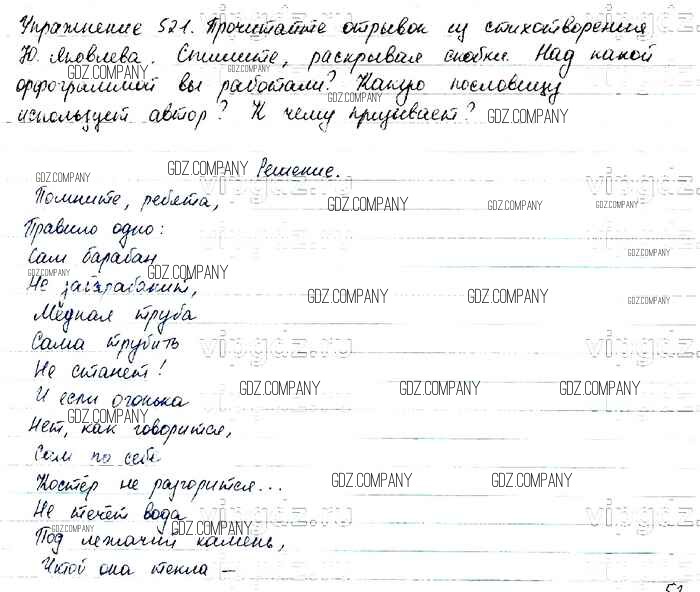 Упражнение 521. Прочитайте отрывок из стихотворения
Ю. Яковлева. Спишите, раскрывая скобки. Над какой
GDZ.COMPANY GDZ.COMPANY
орфограммой вы работали? Какую пословицу
GDZ.COMPANY
использует автор? К чему призывает? GDZ.COMPANY
GDZ.COMPANY Решение.
GDZ.COMPANY vipgdz.ru vipgdz.
Помните, ребята,
GDZ.COMPANY GDZ.COMPANY GDZ.COMPANY
Правило одно:
Сам барабан GDZ.COMPANY
GDZ.COMPANY GDZ.COMPANY
Не забарабанит,
GDZ.COMPANY GDZ.COMPANY GDZ.COMPANY
Медная труба
Сама трубить vipgdz.ru vipgdz.
Не станет!
GDZ.COMPANY GDZ.COMPANY GDZ.COMPANY
И если огонька
GDZ.COMPANY
Нет, как говорится,
Сам по себе
GDZ.COMPANY GDZ.COMPANY
Костёр не разгорится...
Не течёт вода vipgdz.ru vipgdz.
GDZ.COMPANY GDZ.COMPANY
Под лежачий камень,
Чтоб она текла –